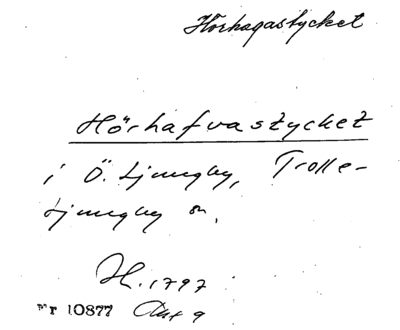 Hörhagastycket
Hörhafvastycket
i Ö. Ljungby, Trolle-
Ljungby sn.
H. 1797
nr 10877 Akt 9